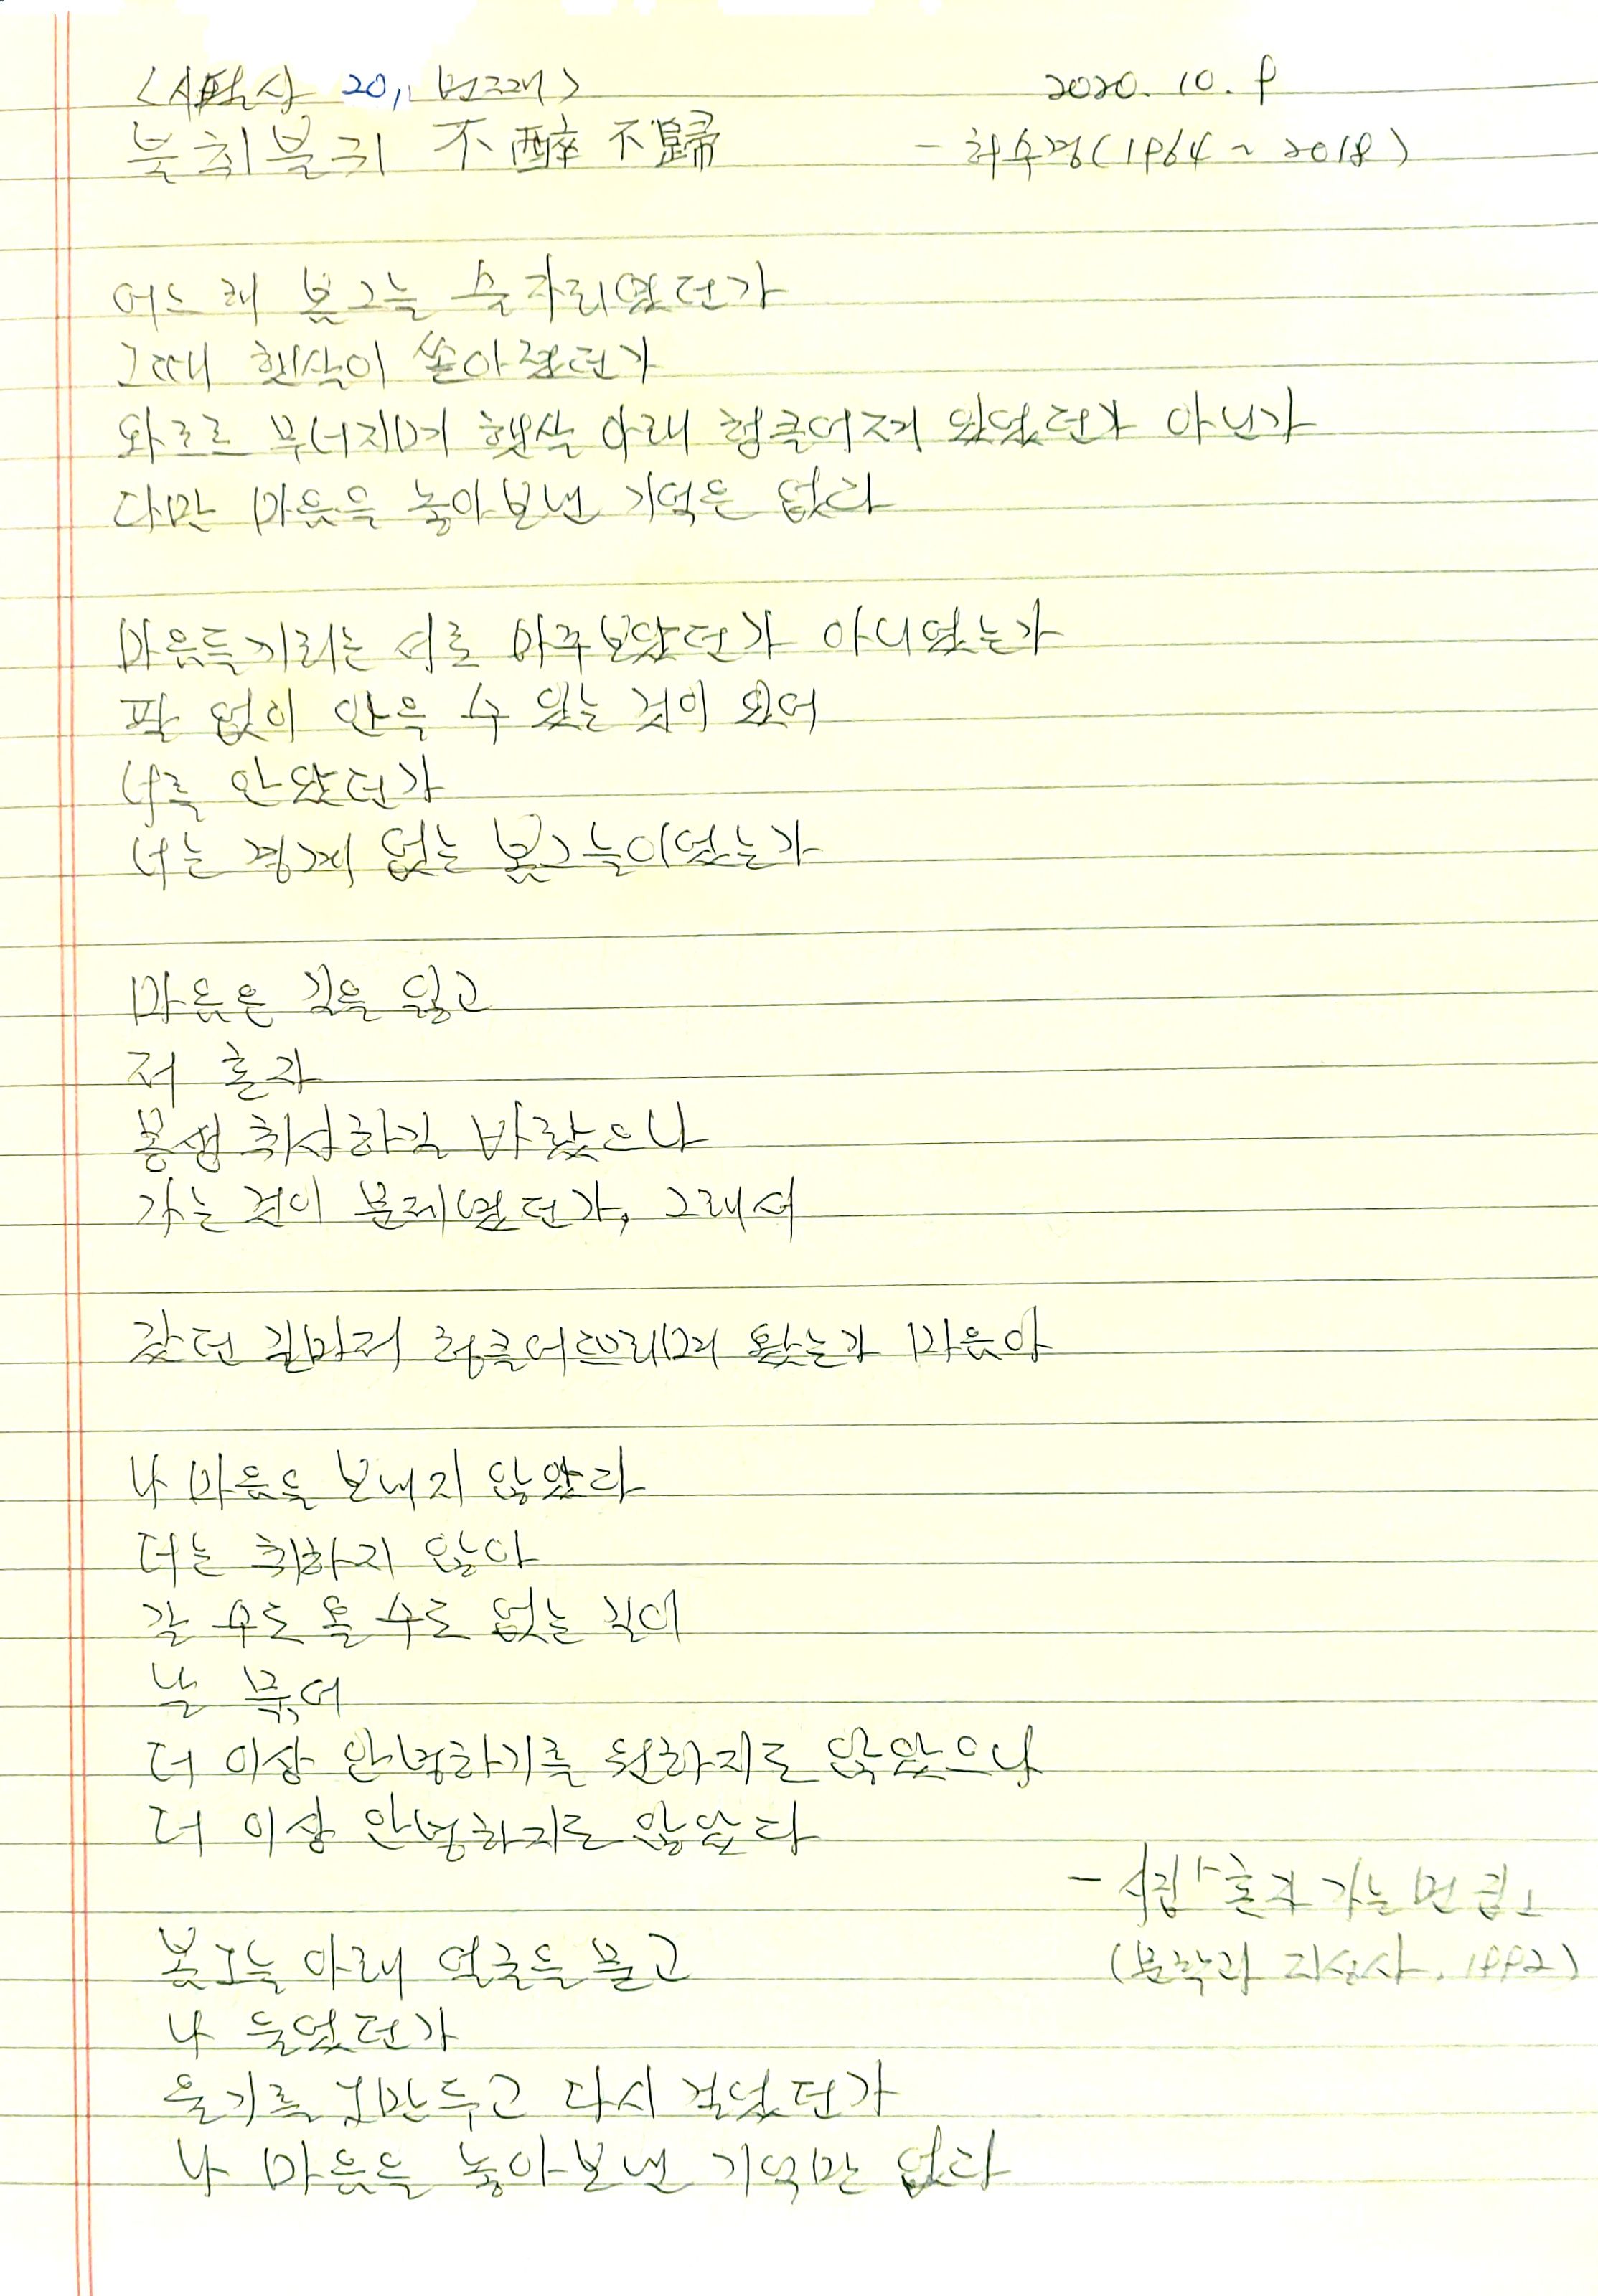 <시필사 20, 번째>
2020. 10. 9
불취불귀 不醉不歸
- 허수경(1964 ~ 2018)
어느 해 봄그늘 술자리였던가
그때 햇살이 쏟아졌던가
와르르 무너지며 햇살 아래 헝클어져 있었던가 아닌가
다만 마음을 놓아보낸 기억은 없다
마음들끼리는 서로 마주보았던가 아니었는가
팔 없이 안을 수 있는 것이 있어
너를 안았던가
너는 경계 없는 봄그늘이었는가
마음은 길을 잃고
저 혼자
몽생취사하길 바랐으나
가는 것이 문제였던가, 그래서
갔던 길마저 헝클어뜨리며 왔는가 마음아
나 마음을 보내지 않았다
더는 취하지 않아
갈 수도 올 수도 없는 길이
날 묶어
더 이상 안녕하기를 원하지도 않았으나
더 이상 안녕하지도 않았다
- 시집 「혼자 가는 먼 집」
(문학과 지성사, 1992)
봄그늘 아래 얼굴을 묻고
나 울었던가
울기를 그만두고 다시 걸었던가
나 마음을 놓아보낸 기억만 없다